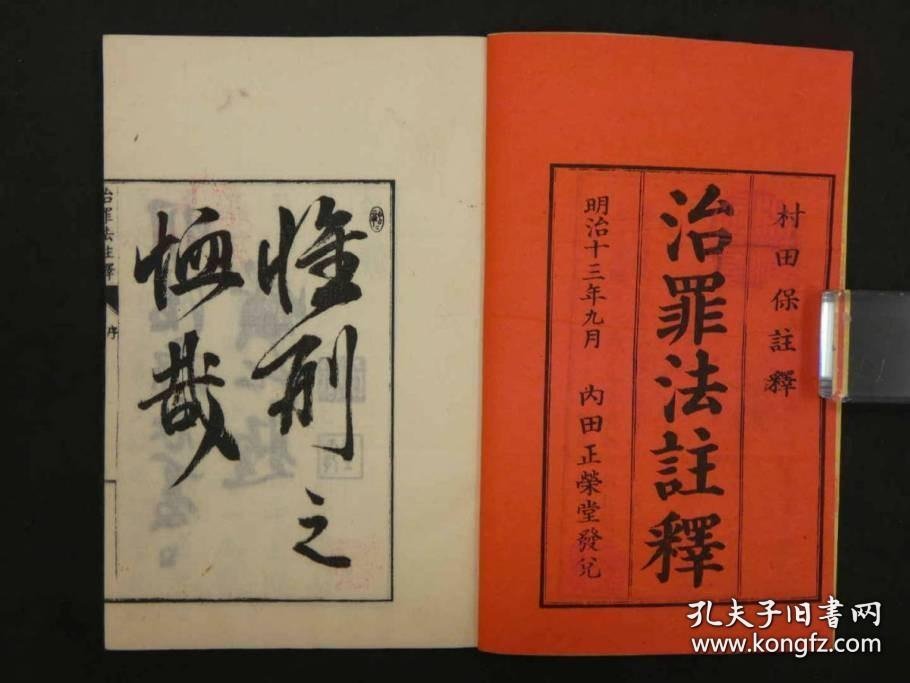 村田保註釋
治罪法註釋
明治十三年九月 內田正榮堂發兌
惟刑之
恤哉
治罪法註釋 序
孔夫子旧书网
www.kongfz.com